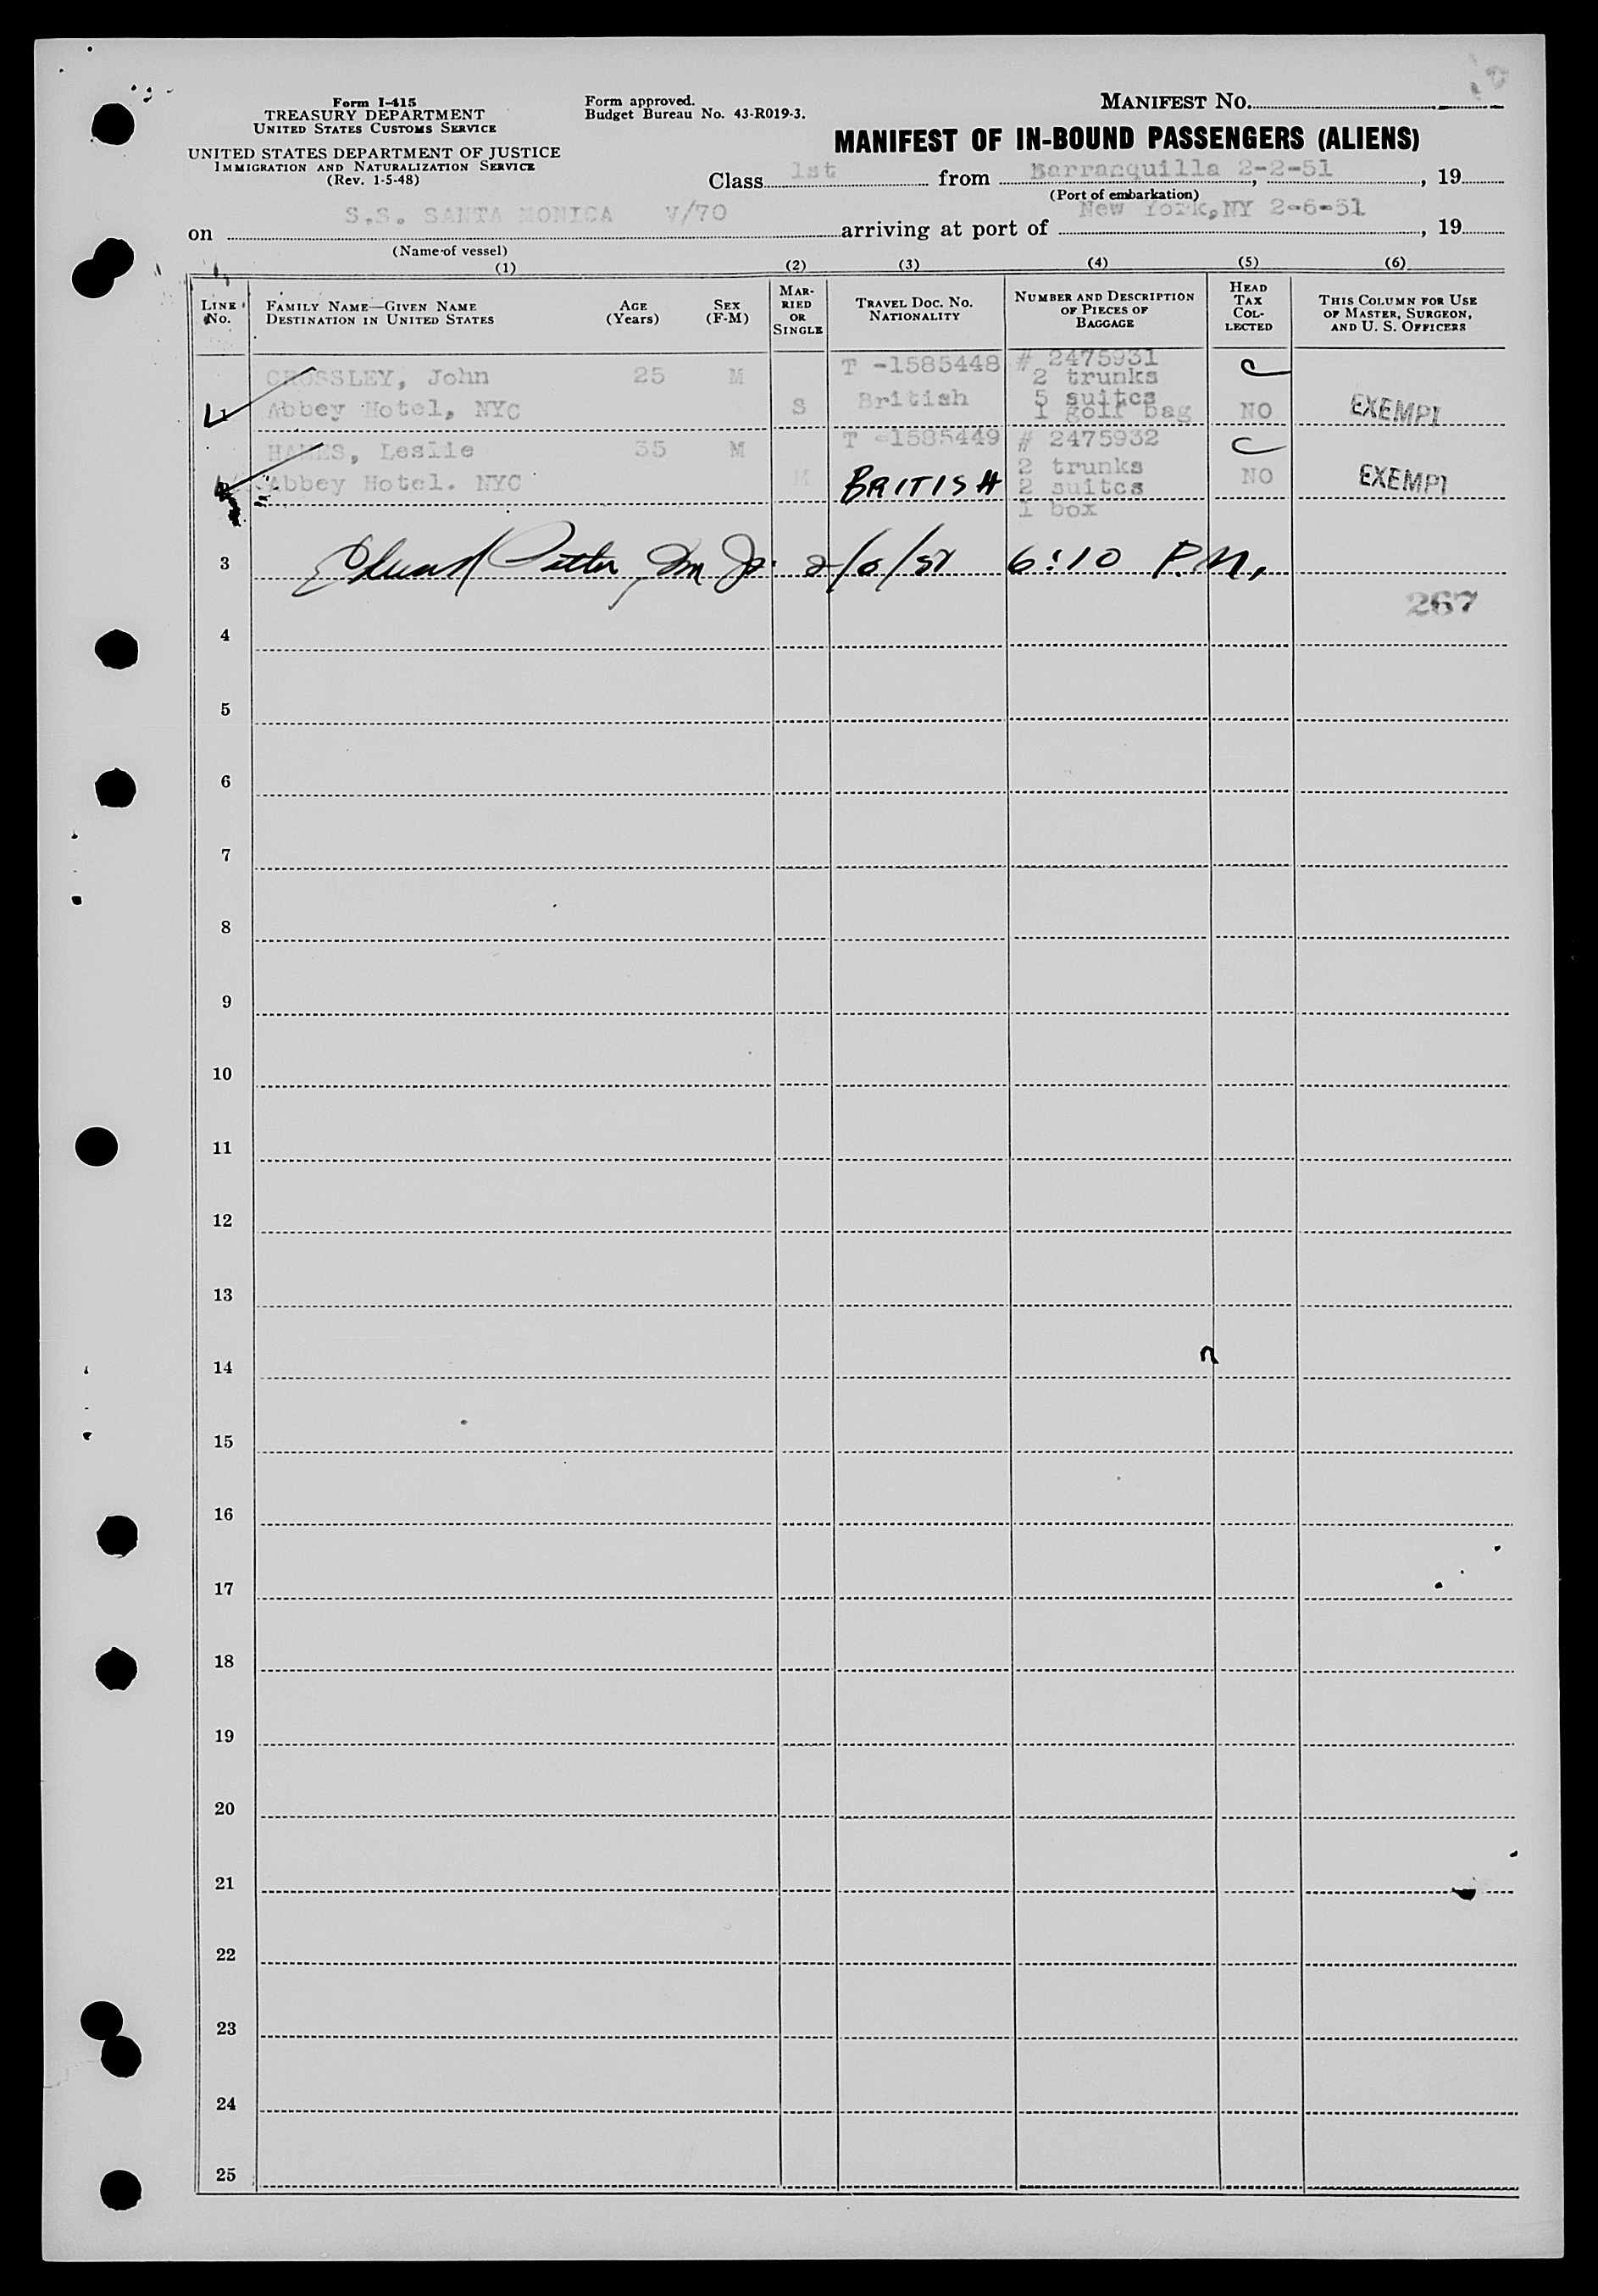 Form I-415
TREASURY DEPARTMENT
UNITED STATES CUSTOMS SERVICE
UNITED STATES DEPARTMENT OF JUSTICE
IMMIGRATION AND NATURALIZATION SERVICE
(Rev. 1-5-48)
Form approved.
Budget Bureau No. 43-R019-3.
MANIFEST NO.
MANIFEST OF IN-BOUND PASSENGERS (ALIENS)
Class 1st from Barranquilla 2-2-51, 19
(Port of embarkation)
on S.S. SANTA MONICA V/70 arriving at port of New York, NY 2-6-51, 19
(Name of vessel)
(1) (2) (3) (4) (5) (6)
LINE NO.
FAMILY NAME—GIVEN NAME
DESTINATION IN UNITED STATES
AGE
(Years)
SEX
(F-M)
MAR-
RIED
OR
SINGLE
TRAVEL DOC. NO.
NATIONALITY
NUMBER AND DESCRIPTION
OF PIECES OF
BAGGAGE
HEAD
TAX
COL-
LECTED
THIS COLUMN FOR USE
OF MASTER, SURGEON,
AND U. S. OFFICERS
CROSSLEY, John 25 M T -1585448 # 2475931 C
2 trunks
1 Abbey Hotel, NYC S British 5 suitcs NO EXEMPT
1 golf bag
Leslie 35 M T -1585449 # 2475932 C
2 trunks
2 Abbey Hotel. NYC M BRITISH 2 suitcs NO EXEMPT
1 box
3 2/6/51 6:10 P.M.
267
4
5
6
7
8
9
10
11
12
13
14
15
16
17
18
19
20
21
22
23
24
25